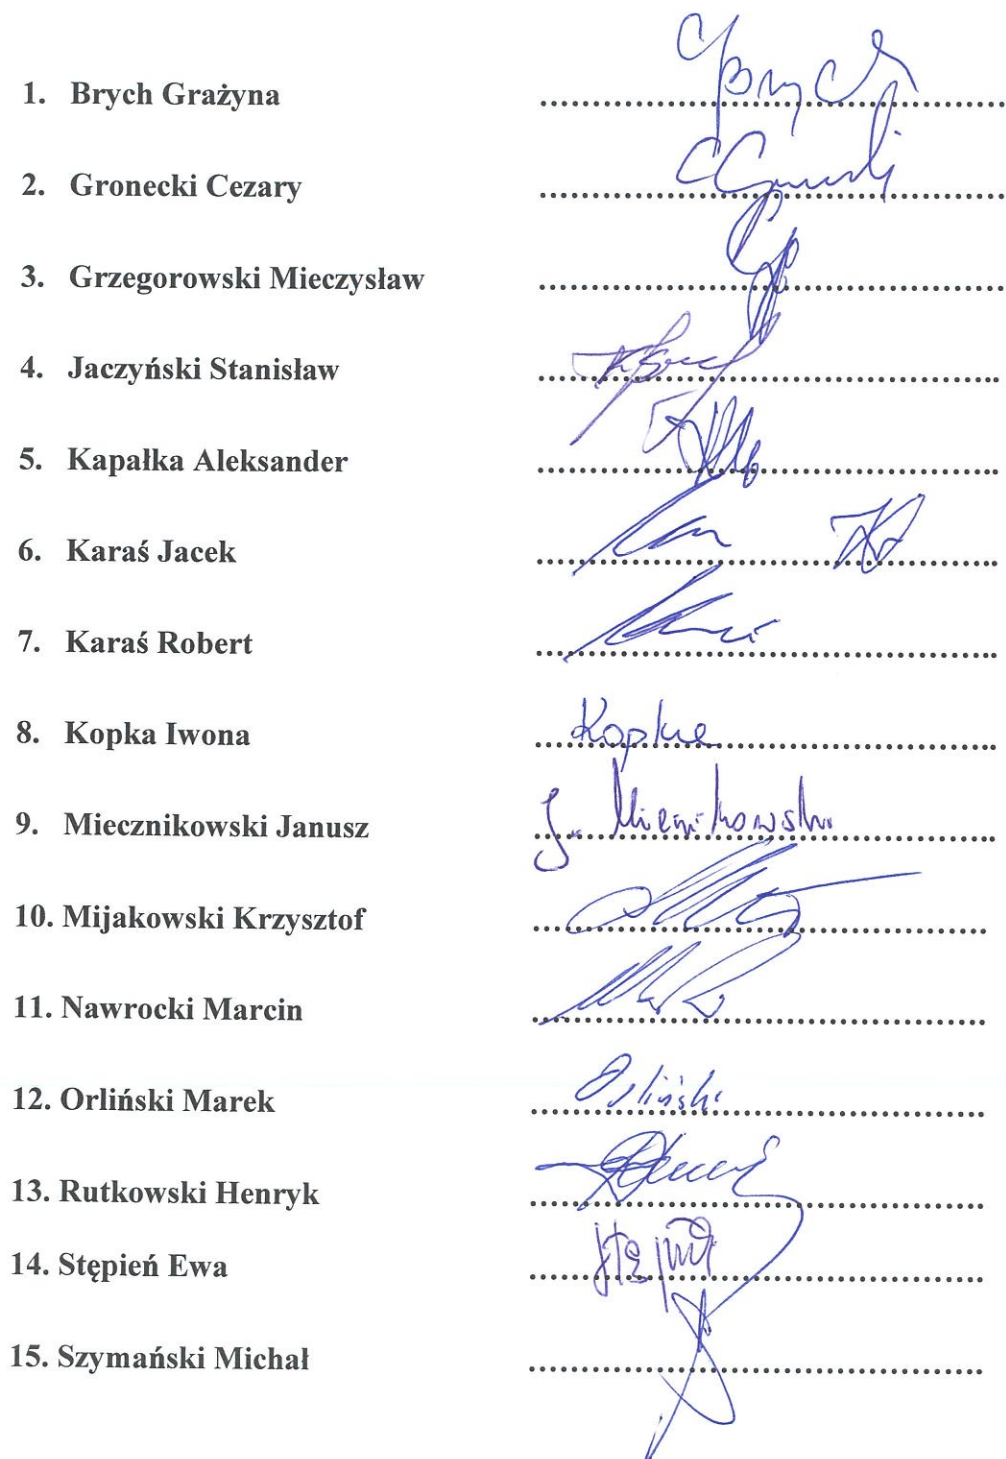 1. Brych Grażyna ........ Brych
2. Gronecki Cezary ........
3. Grzegorowski Mieczysław ........
4. Jaczyński Stanisław ........
5. Kapałka Aleksander ........
6. Karaś Jacek ........
7. Karaś Robert ........
8. Kopka Iwona ........ Kopka
9. Miecznikowski Janusz ........ J. Miecznikowski
10. Mijakowski Krzysztof ........
11. Nawrocki Marcin ........
12. Orliński Marek ........ Orliński
13. Rutkowski Henryk ........
14. Stępień Ewa ........
15. Szymański Michał ........